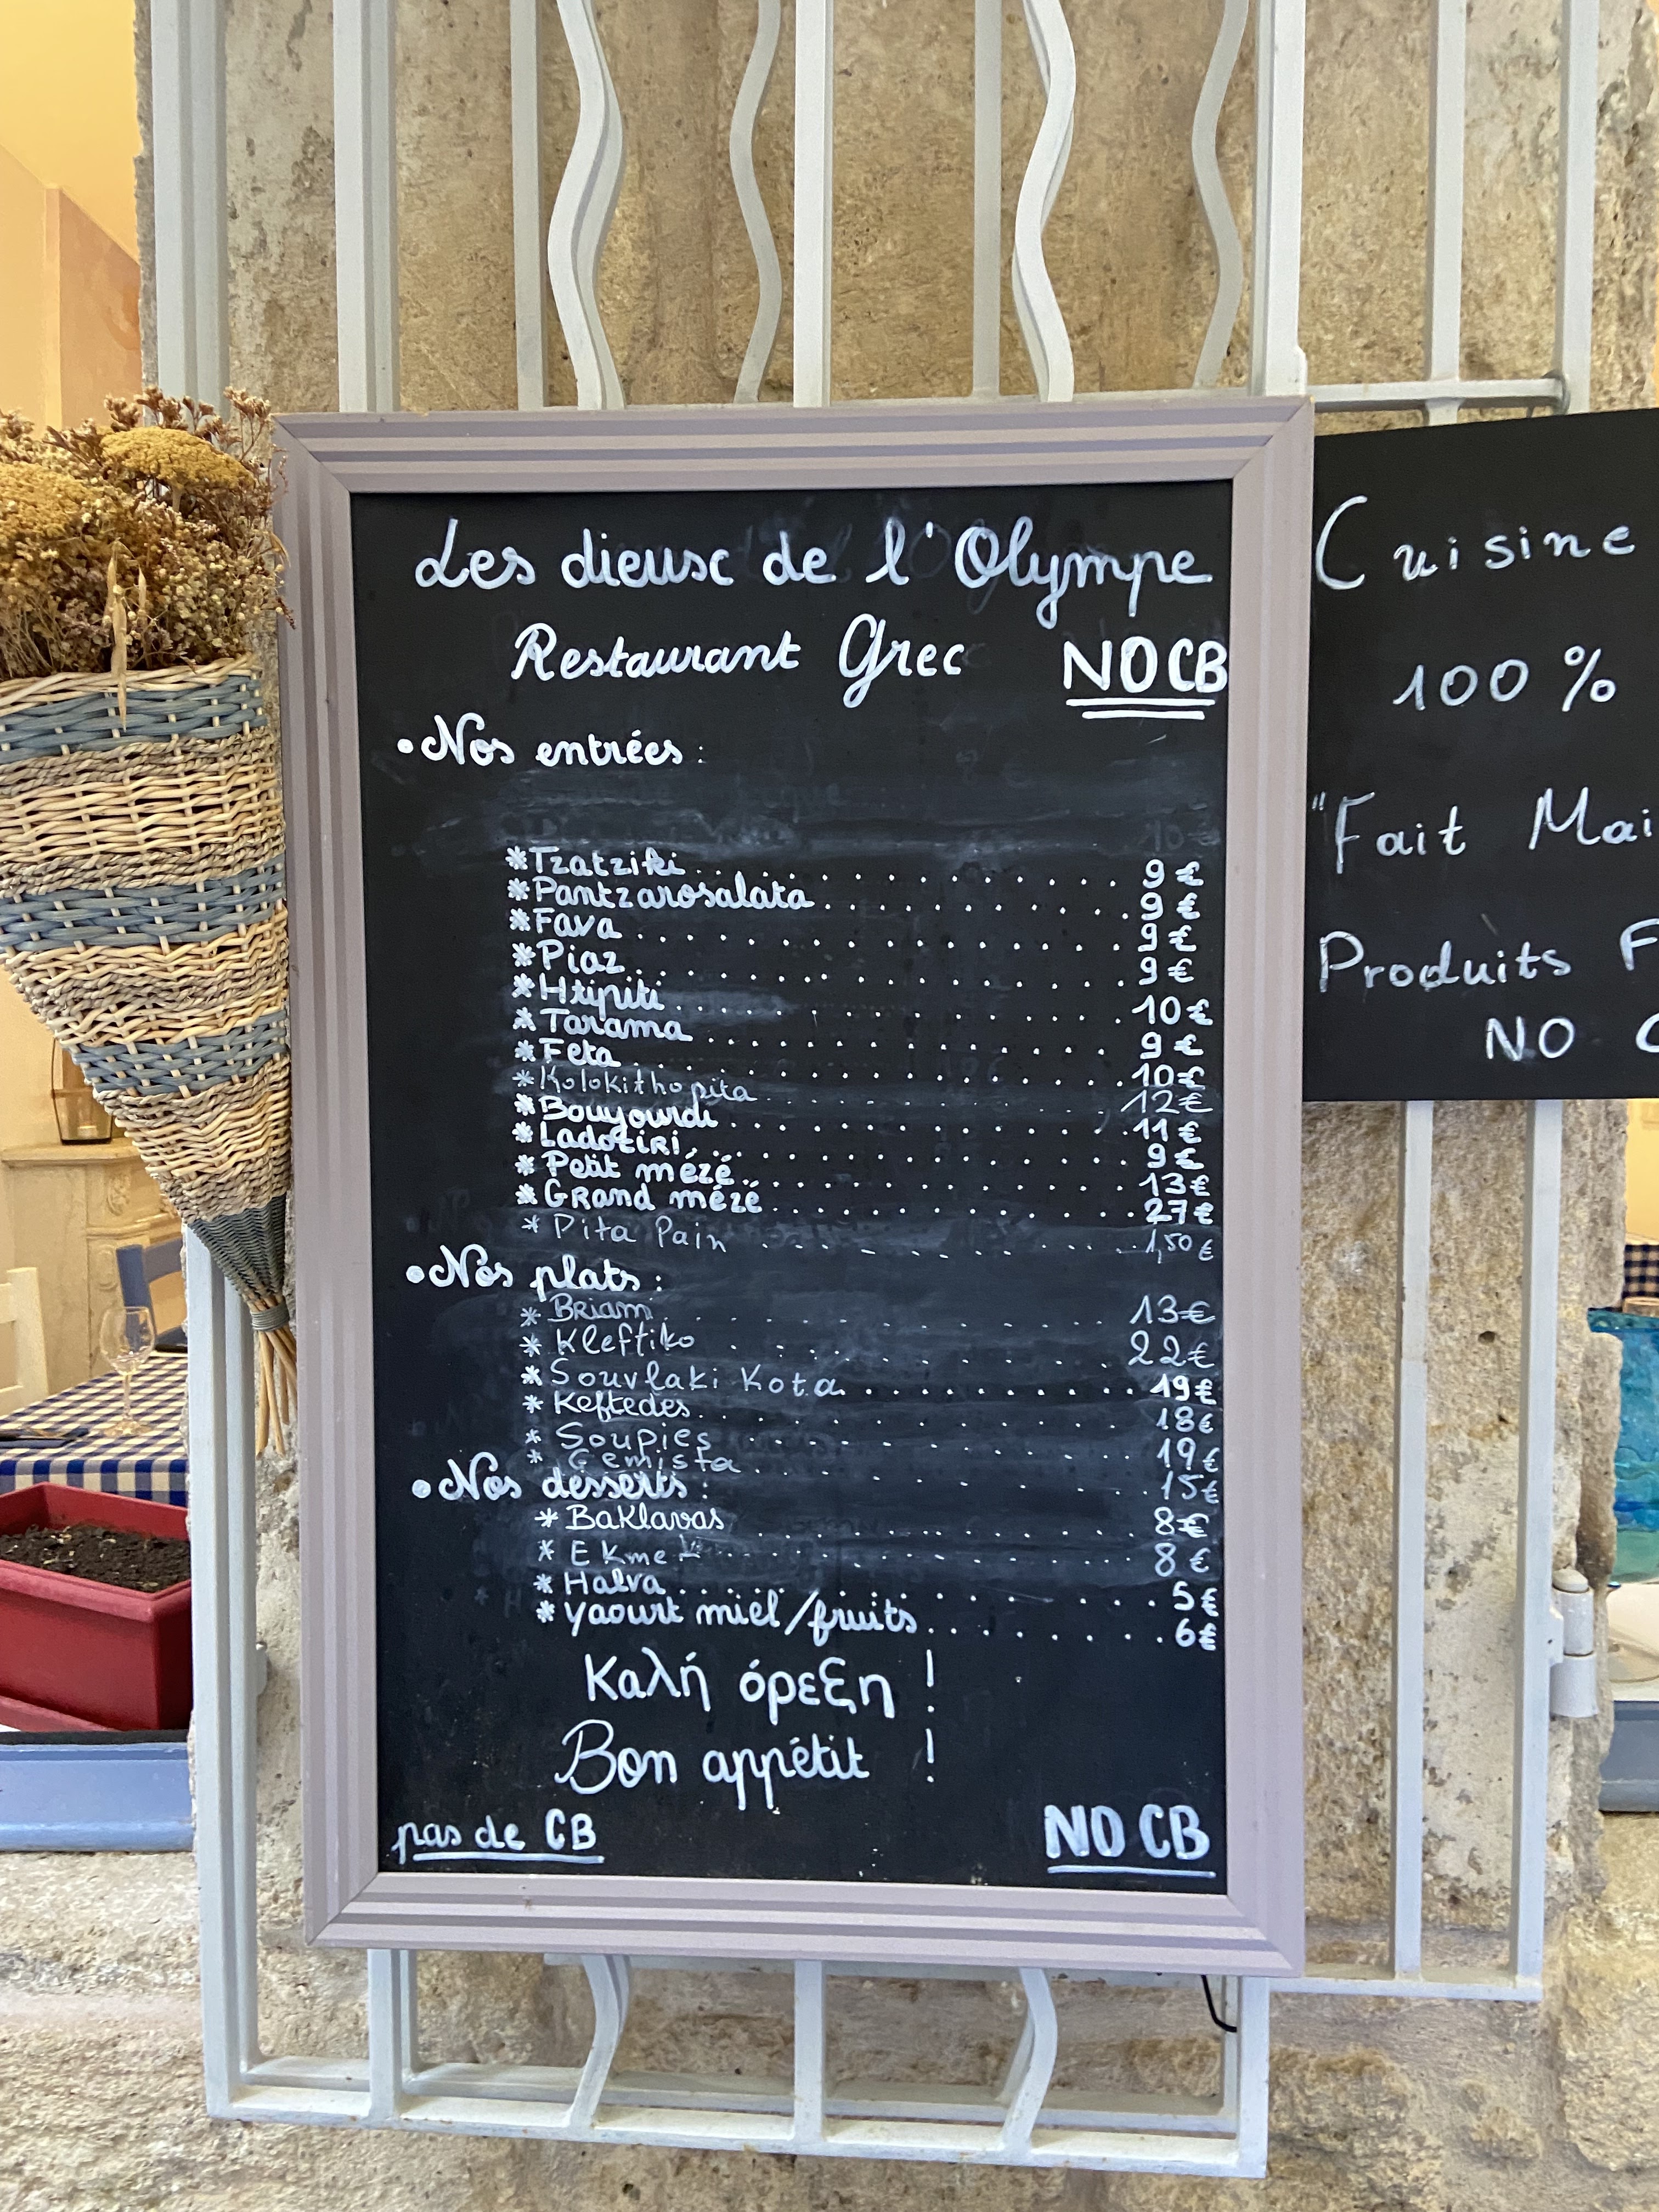 Les dieux de l'Olympe
Restaurant Grec NO CB
• Nos entrées :
* Tzatziki 9 €
* Pantzarosalata 9 €
* Fava 9 €
* Piaz 9 €
* Htipiti 10 €
* Tarama 9 €
* Feta 10 €
* Kolokithopita 12 €
* Bouyourdi 11 €
* Ladotiri 9 €
* Petit mézé 13 €
* Grand mézé 27 €
* Pita Pain 1,50 €
• Nos plats :
* Briam 13 €
* Kleftiko 22 €
* Souvlaki Kota 19 €
* Keftedes 18 €
* Soupies 19 €
* Gemista 15 €
• Nos desserts :
* Baklavas 8 €
* Ekmek 8 €
* Halva 5 €
* yaourt miel/fruits 6 €
Καλή όρεξη !
Bon appétit !
pas de CB NO CB
Cuisine
100 %
"Fait Mai
Produits F
NO C